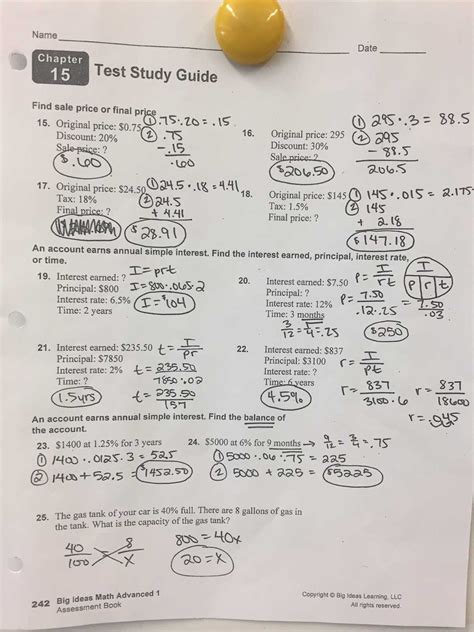 Name
Date
Chapter 15 Test Study Guide
Find sale price or final price
15. Original price: $0.75
Discount: 20%
Sale price: ?
① .75 · .20 = .15
② .75
- .15
.60
$.60
16. Original price: 295
Discount: 30%
Sale price: ?
① 295 · .3 = 88.5
② 295
- 88.5
206.5
$206.50
17. Original price: $24.50
Tax: 18%
Final price: ?
① 24.5 · .18 = 4.41
② 24.5
+ 4.41
$28.91
18. Original price: $145
Tax: 1.5%
Final price: ?
① 145 · .015 = 2.175
② 145
+ 2.18
$147.18
An account earns annual simple interest. Find the interest earned, principal, interest rate,
or time.
19. Interest earned: ?
Principal: $800
Interest rate: 6.5%
Time: 2 years
I = prt
I = 800 · .065 · 2
I = $104
20. Interest earned: $7.50
Principal: ?
Interest rate: 12%
Time: 3 months
3/12 = 1/4 = .25
P = I/rt
I
P r t
P = 7.50/.12 · .25 = 7.50/.03
$250
21. Interest earned: $235.50
Principal: $7850
Interest rate: 2%
Time: ?
t = I/pr
t = 235.50/7850 · .02
t = 235.50/157
1.5yrs
22. Interest earned: $837
Principal: $3100
Interest rate: ?
Time: 6 years
r = I/pt
r = 837/3100 · 6
r = 837/18600
r = .045
4.5%
An account earns annual simple interest. Find the balance of
the account.
23. $1400 at 1.25% for 3 years
① 1400 · .0125 · 3 = 52.5
② 1400 + 52.5 = $1452.50
24. $5000 at 6% for 9 months → 9/12 = 3/4 = .75
① 5000 · .06 · .75 = 225
② 5000 + 225 = $5225
25. The gas tank of your car is 40% full. There are 8 gallons of gas in
the tank. What is the capacity of the gas tank?
40/100 8/x
800 = 40x
20 = x
242 Big Ideas Math Advanced 1
Assessment Book
Copyright © Big Ideas Learning, LLC
All rights reserved.